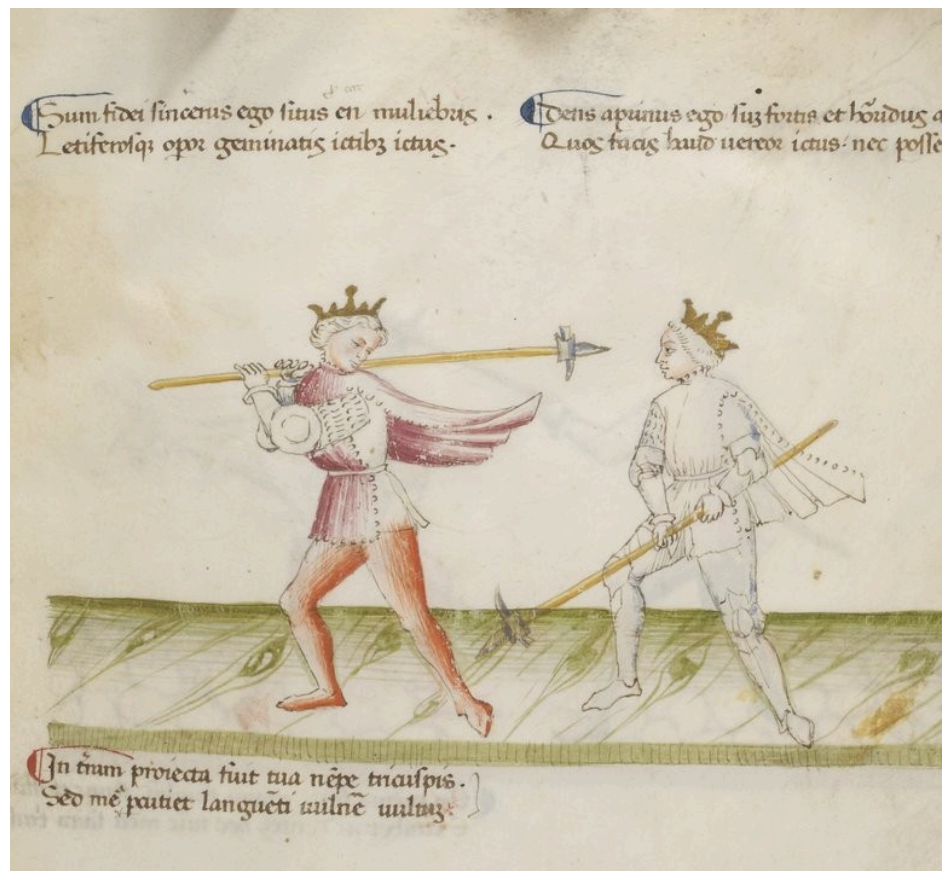 Sum fidei sincerus ego situs en muliebris .
Letiferosq; opor geminatis ictib; ictus.
Dens aprinus ego suz fortis et hōridus
Quos facis haud uereor ictus. nec posse
In trām proiecta fuit tua nēpe tricuspis.
Sed mē percutiet languēti uulnē uultuz.